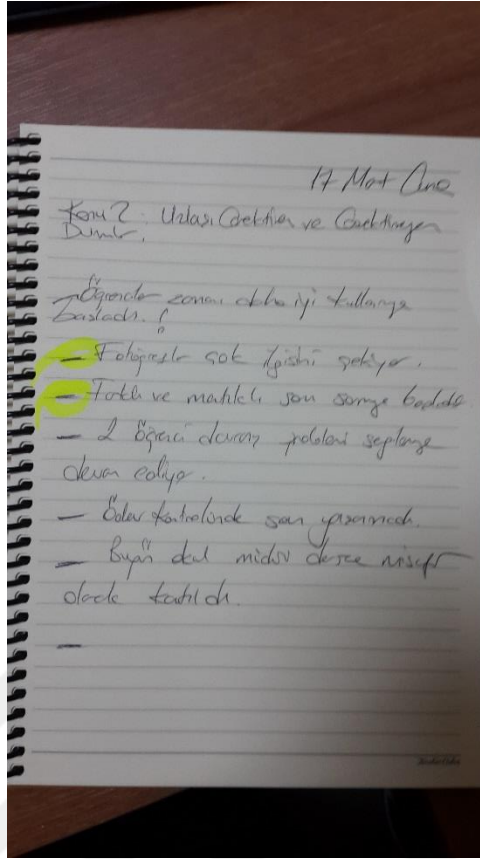 17 Mart Çarş
Konu 2: Uzlaşı Gerektiren ve Gerektirmeyen
Durumlar.
- Öğrenciler zamanı daha iyi kullanmaya
başladı. !
- Fotoğraflar çok ilgisini çekiyor.
- Farklı ve mantıklı soru sormaya başladılar
- 2 öğrenci davranış problemi sergilemeye
devam ediyor.
- Ödev kontrolünde sorun yaşanmadı.
- Bugün okul müdürü derse misafir
olarak katıldı.
-